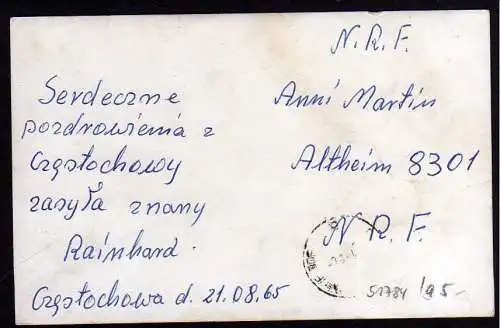 Serdeczne
pozdrowienia z
Częstochowy
zasyła znany
Rainhard.
Częstochowa d. 21.08.65
N. R. F.
Anni Martin
Altheim 8301
N R. F.
51784 / 95-